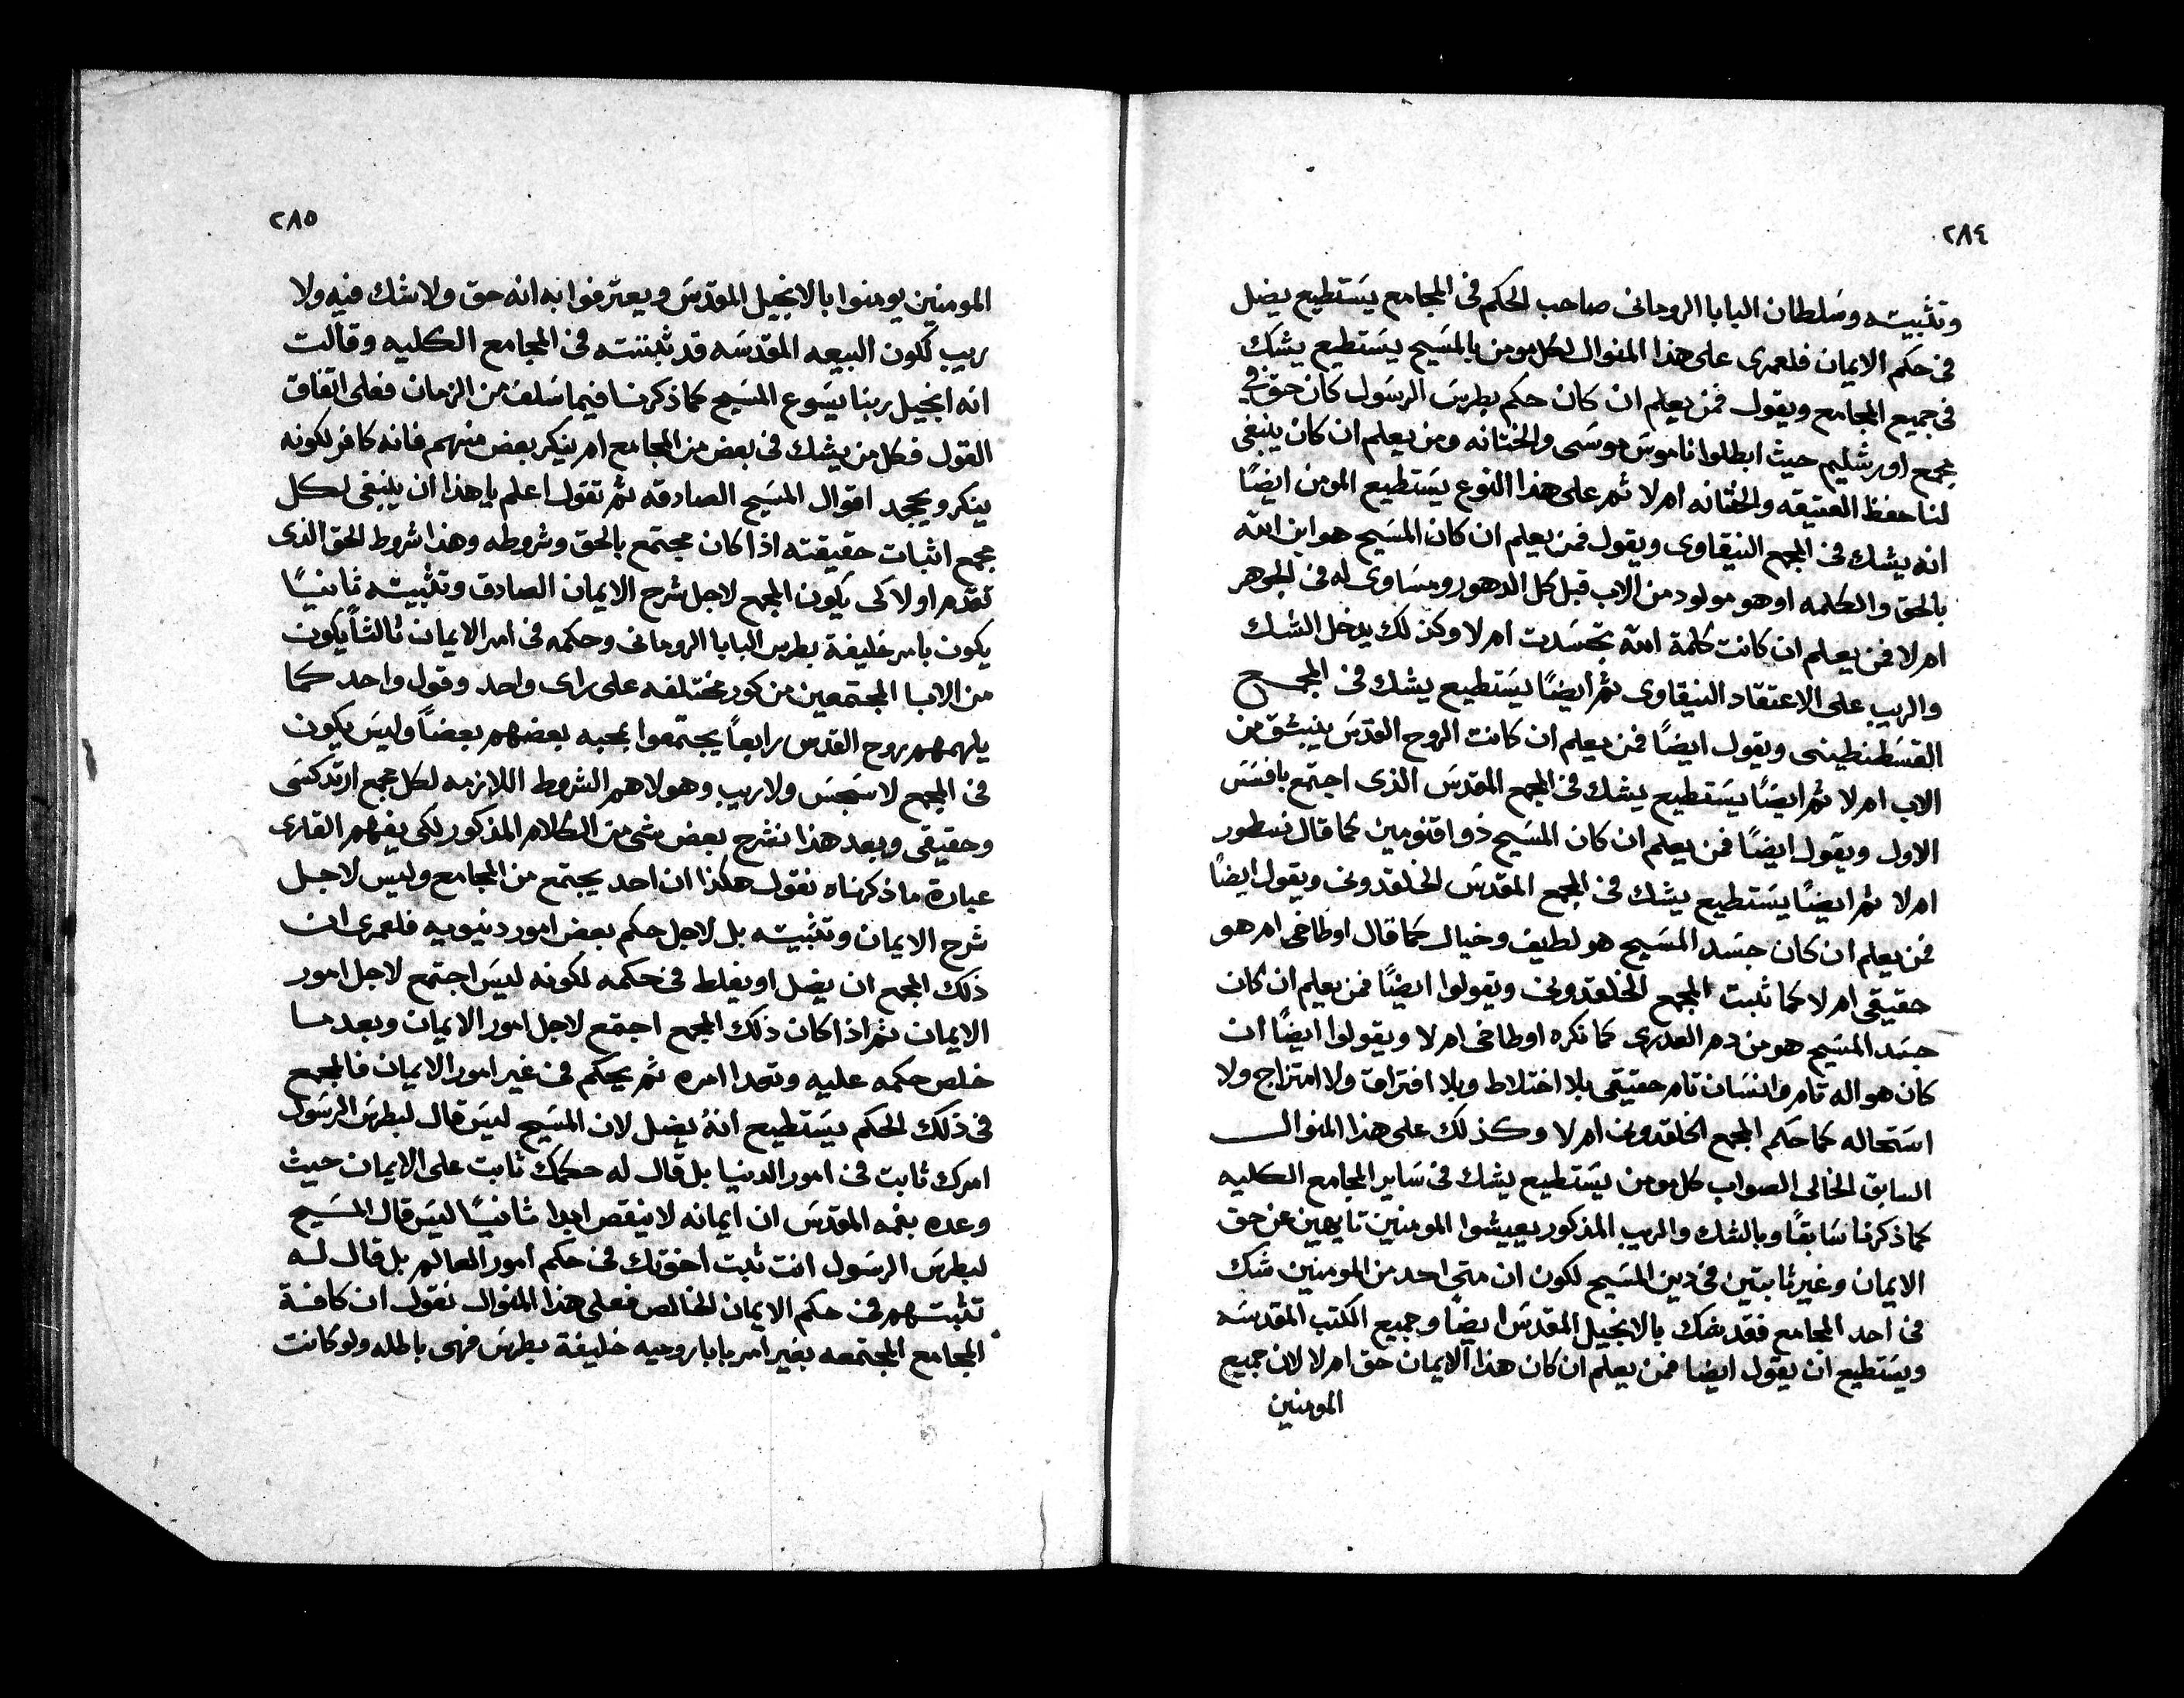 ٢٨٤
وتثبيته وسلطان البابا الروحانى صاحب الحكم فى المجامع يستطيع يضل
فى حكم الايمان فلعمرى على هذا المنوال لكل مومن بالمسيح يستطيع يشك
فى جميع المجامع ويقول فمن يعلم ان كان حكم بطرس الرسول كان حق فى
مجمع اورشليم حيث ابطلوا ناموس موسى والختانه ومن يعلم ان كان ينبغى
لنا حفظ العتيقه والختانه ام لا ثم على هذا النوع يستطيع المومن ايضًا
انه يشك فى المجمع النيقاوى ويقول فمن يعلم ان كان المسيح هو ابن الله
بالحق والكلمه او هو مولود من الاب قبل كل الدهور ومساوى له فى الجوهر
ام لا فمن يعلم ان كانت كلمة الله تجسدت ام لا وكذلك يدخل الشك
والريب على الاعتقاد النيقاوى ثم ايضًا يستطيع يشك فى المجمع
القسطنطينى ويقول ايضًا فمن يعلم ان كانت الروح القدس ينبثق من
الاب ام لا ثم ايضًا يستطيع يشك فى المجمع المقدس الذى اجتمع بافسس
الاول ويقول ايضًا فمن يعلم ان كان المسيح ذو اقنومين كما قال نسطور
ام لا ثم ايضًا يستطيع يشك فى المجمع المقدس الخلقدونى ويقول ايضًا
فمن يعلم ان كان جسد المسيح هو لطيف وخيال كما قال اوطاخى ام هو
حقيقى ام لا كما ثبت المجمع الخلقدونى ويقولوا ايضًا فمن يعلم ان كان
جسد المسيح هو من دم العدرى كما نكره اوطاخى ام لا ويقولوا ايضًا ان
كان هو اله تام وانسان تام حقيقى بلا اختلاط وبلا افتراق ولا امتزاج ولا
استحاله كما حكم المجمع الخلقدونى ام لا وكذلك على هذا المنوال
السابق الخالى الصواب كل مومن يستطيع يشك فى ساير المجامع الكليه
كما ذكرنا سابقًا وبالشك والريب المذكور يعيشوا المومنين تايهين عن حق
الايمان وغير ثابتين فى دين المسيح لكون ان متى احد من المومنين شك
فى احد المجامع فقد شك بالانجيل المقدس ايضًا وجميع الكتب المقدسه
ويستطيع ان يقول ايضا فمن يعلم ان كان هذا الايمان حق ام لا لان جميع
المومنين
٢٨٥
المومنين يومنوا بالانجيل المقدس ويعترفوا به انه حق ولا شك فيه ولا
ريب لكون البيعه المقدسه قد ثبتته فى المجامع الكليه وقالت
انه انجيل ربنا يسوع المسيح كما ذكرنا فيما سلف من الزمان فعلى اتفاق
القول فكل من يشك فى بعض من المجامع ام ينكر بعض منهم فانه كافر لكونه
ينكر ويجحد اقوال المسيح الصادقه ثم نقول اعلم يا هذا ان ينبغى لكل
مجمع اثبات حقيقته اذا كان مجتمع بالحق وشروطه وهذا شروط الحق الذى
تقدم اولا كى يكون المجمع لاجل شرح الايمان الصادق وتثبيته ثانيًا
يكون بامر خليفة بطرس البابا الروحانى وحكمه فى امر الايمان ثالثًا يكون
من الابا المجتمعين من كور مختلفه على راى واحد وقول واحد كما
يلهمهم روح القدس رابعاً يجتمعوا بمحبه بعضهم بعضًا وليس يكون
فى المجمع لا سجس ولا ريب وهولا هم الشروط اللازمه لكل مجمع ارتدكسى
وحقيقى وبعد هذا نشرح بعض شى من الكلام المذكور لكى يفهم القارى
عبارة ما ذكرناه نقول هكذا ان احد يجتمع من المجامع وليس لاجل
شرح الايمان وتثبيته بل لاجل حكم بعض امور دنيويه فلعمرى ان
ذلك المجمع ان يضل او يغلط فى حكمه لكونه ليس اجتمع لاجل امور
الايمان ثم اذا كان ذلك المجمع اجتمع لاجل امور الايمان وبعد ما
خلص حكمه عليه وتعدا امره ثم يحكم فى غير امور الايمان فالمجمع
فى ذلك الحكم يستطيع انه يضل لان المسيح ليس قال لبطرس الرسول
امرك ثابت فى امور الدنيا بل قال له حكمك ثابت على الايمان حيث
وعده بفمه المقدس ان ايمانه لا ينقص ابدا ثانيًا ليس قال المسيح
لبطرس الرسول انت ثبت اخوتك فى حكم امور العالم بل قال له
تثبتهم فى حكم الايمان الخالص فعلى هذا المنوال نقول ان كافة
المجامع المجتمعه بغير امر بابا روميه خليفة بطرس فهى باطله ولو كانت